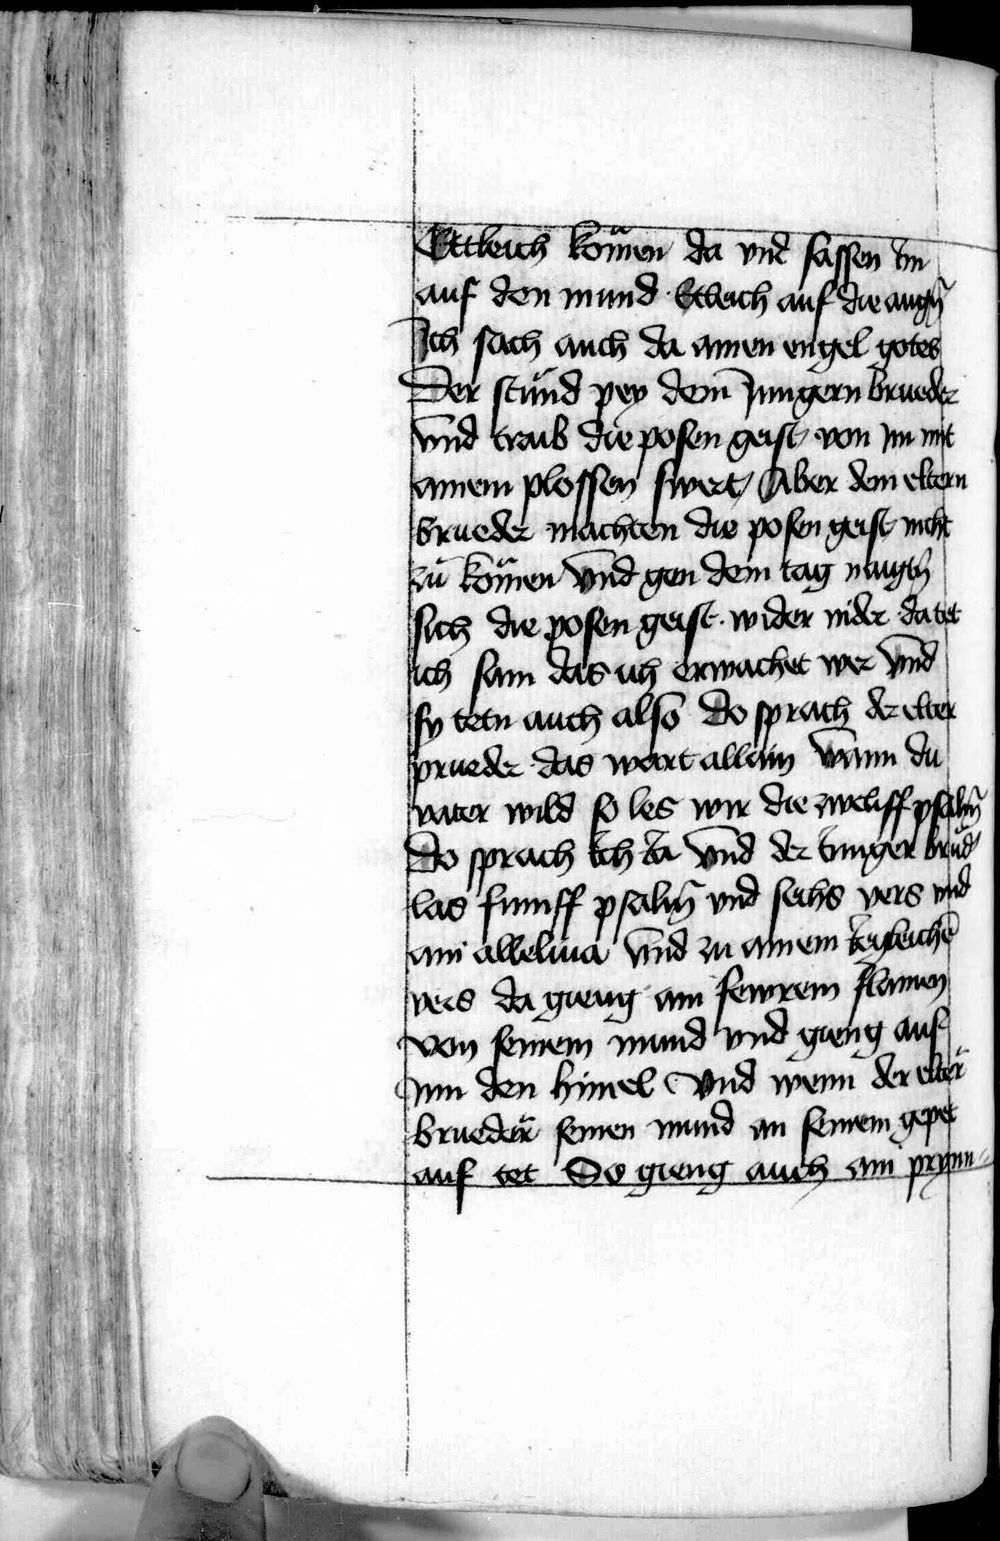 Ettleich komen da vnd sassen im
auf den mund Etleich auf die augn̄
Ich sach auch da ainen engel gotes
Der stuͦnd pey dem Jungern brueder
vnd traib die posen geist von im mit
ainem plossen swert / Aber dem eltern
brueder machten die posen geist nicht
zuͦ komen vnd gen dem tag naigtn̄
sich die posen geist wider nider da tet
ich sam das ich erwachet wer vnd
sy tetn auch also Do sprach der elter
prueder das wort allain wann du
vater wild so les wir die zweliff psalm̄
Do sprach ich ia vnd der iunger brud
las funiff psalm̄ vnd sechs vers vnd
ain alleluia vnd zu ainem iegleichē
vers da gieng ain fewrein flamen
von seinem mund vnd gieng auf
inn den himel vnd wenn der elter
brueder seinen mund an seinem gepet
auf tet So gieng auch ain prynn=